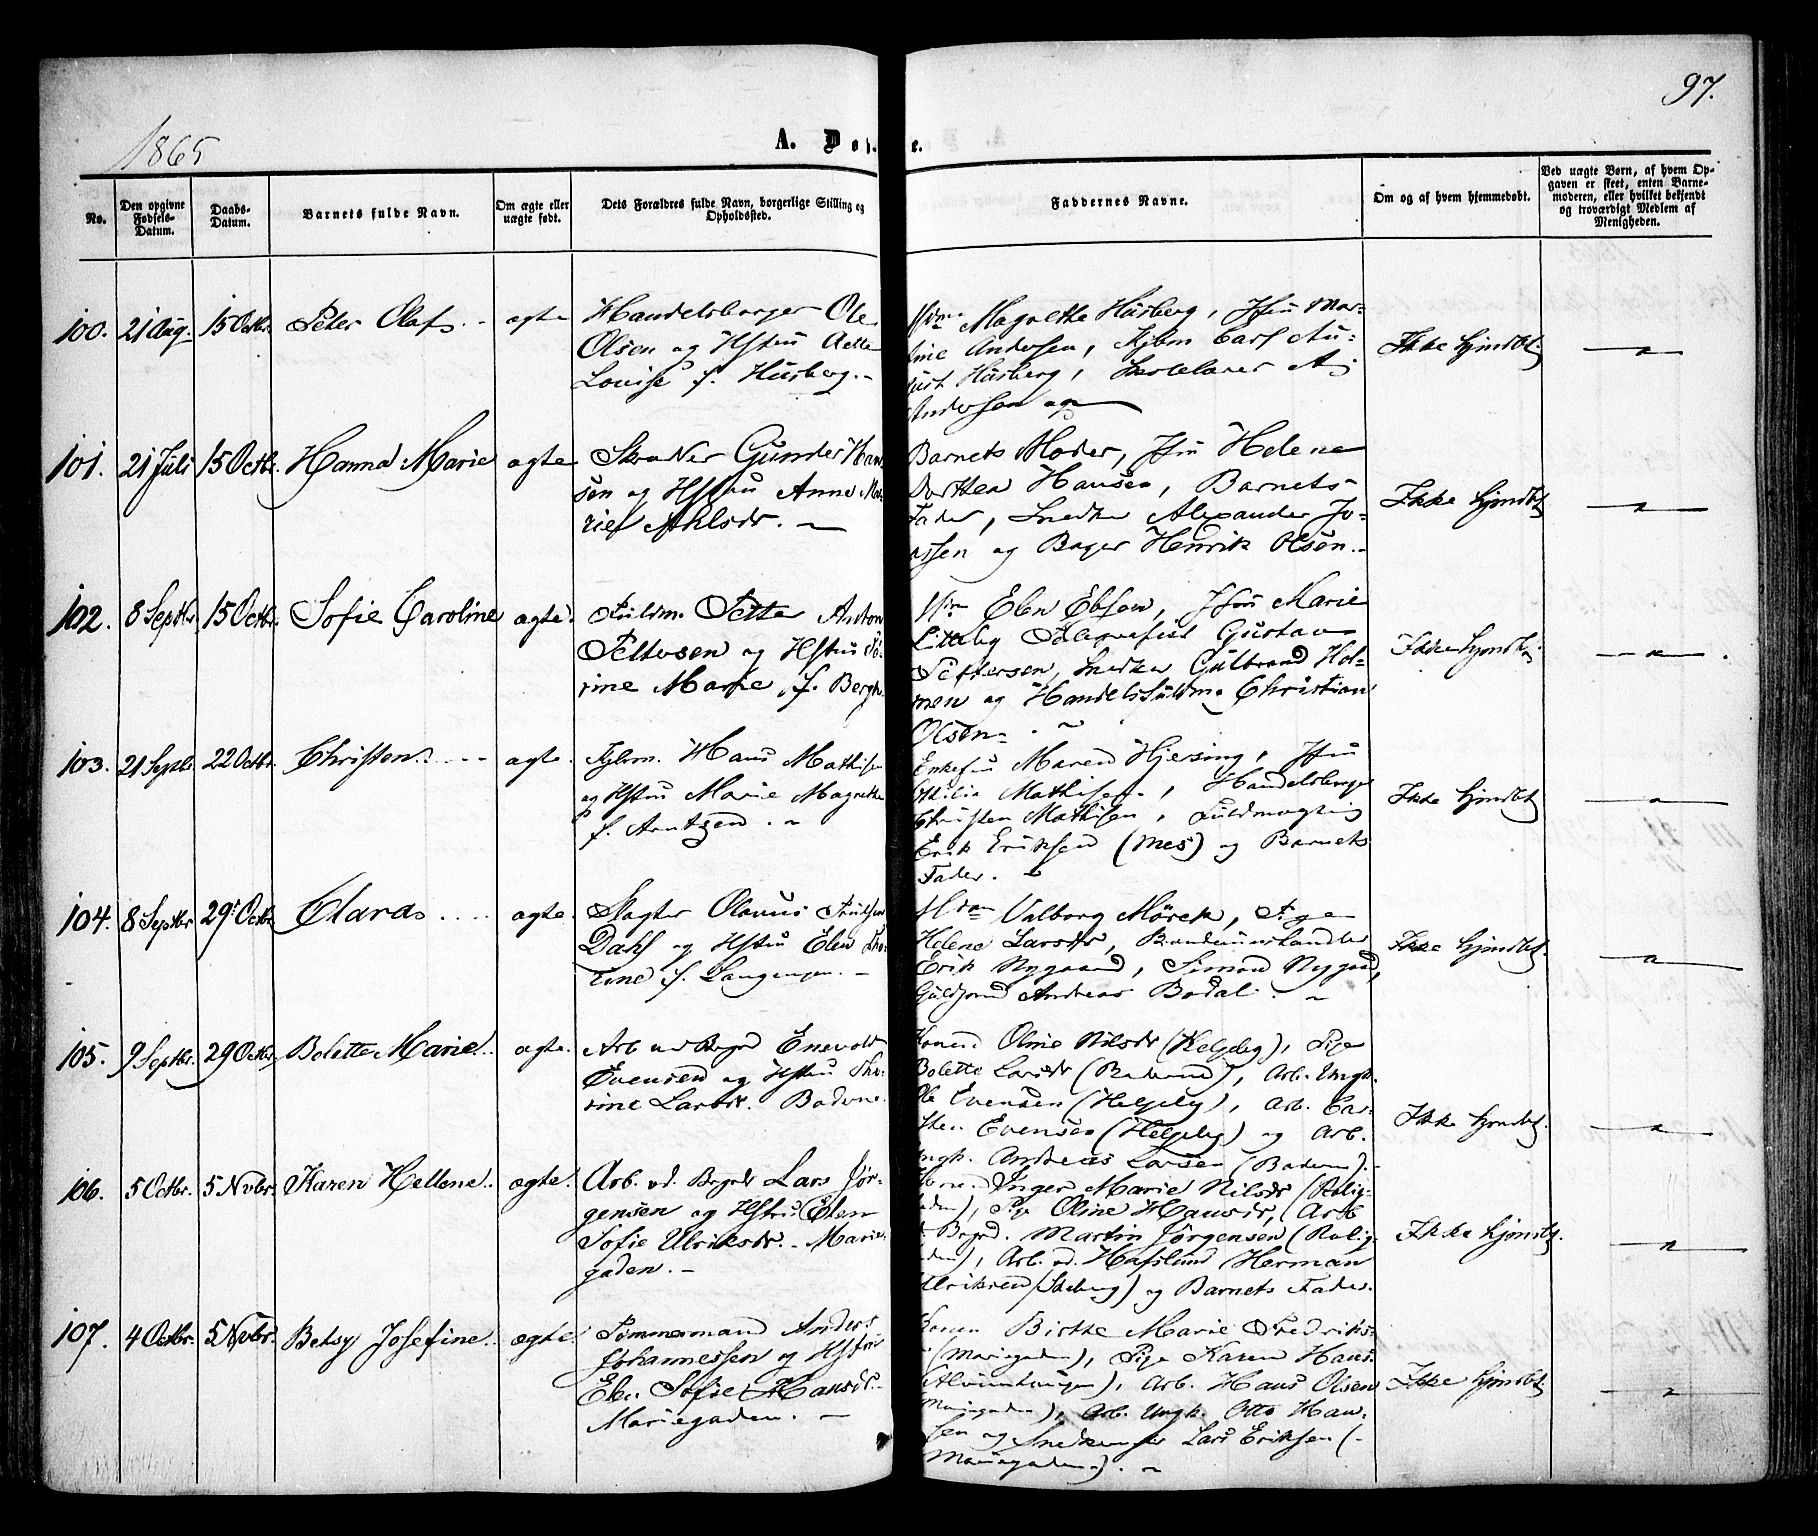 97.
1865
A. Døb. e.
No.
Den opgivne Fødsels-Datum.
Daabs-Datum.
Barnets fulde Navn.
Om ægte eller uægte født.
Dets Forældres fulde Navn, borgerlige Stilling og Opholdssted.
Faddernes Navne.
Om og af hvem hjemmedøbt.
Ved uægte Børn, af hvem Opgaven er skeet, enten Barnemoderen, eller hvilket bekjendt og troværdigt Medlem af Menigheden.
100. 21 Aug. 15 Octbr. Peter Olaf. ægte
Handelsborger Ole
Olsen og Hstru
Louise f. Husberg.
Magrethe Husberg, Jfru Mar-
tine Andersen, Kjbm Carl Au-
gust Husberg,
Andersen og
Ikke hjmdbt.
101. 21 Juli 15 Octbr. Hanna Marie ægte
Skrædder Gunder Han
sen og Hstru Anne Ma
rie
Barnets Moder, Jfru Helene
Dorthea Hansen, Barnets
Fader, Snedker Alexander Jo-
assen og Bager Henrik Olsen.
Ikke hjmdbt.
102. 8 Septbr. 15 Octbr. Sofie Caroline ægte
Fuldm. Petter Anton
Pettersen og Hstru
rine Marie f. Bergh.
Elen Ebsen, Jfru Marie
Telegrafist Gustav
Pettersen, Snedker Gulbrand Hol-
men og Handelsfuldm. Christian
Olsen.
Ikke hjmdbt.
103. 21 Septbr 22 Octbr. Christen ægte.
Kjbm. Hans Mathisen
og Hstru Marie Magrethe
f. Arntzen.
Enkefru Maren Hjersing, Jfru
Mathisen, Handelsborger
Christen Mathisen, Fuldmægtig
Erik Eriksen (Mos) og Barnets
Fader.
Ikke hjmdbt
104. 8 Septbr 29 Octbr. Clara ægte.
Slagter Olaus
Dahl og Hstru Elen Tho-
rine f. Langengen.
Valborg Mørck, Pige
Helene Larsdr,
Erik Nygaard, Simon Nygaard,
Andreas Bodal.
Ikke hjmdbt.
105. 9 Septbr. 29 Octbr. Bolette Marie ægte.
Arb. ved Brgrd Enevold
Evensen og Hstru Tho-
rine Larsdr.
Konen Oline Nilsdr (Helgeby), Pige
Bolette Larsdr, Arb. Ungk.
Ole Evensen (Helgeby), Arb. Car-
sten Evensen (Helgeby) og Arb.
Ungk. Andreas Larsen
Ikke hjmdbt.
106. 5 Octbr. 5 Nvbr. Karen Hellene ægte.
Arb. vd. Brgrd Lars Jør-
gensen og Hstru Elen
Sofie Ulriksdr. Marie-
gaden.
Konen Inger Marie Nilsdr (Rolig-
heden), Pige Oline Hansdr, Arb.
Brgrd. Martin Jørgensen (Rolig-
heden), Arb. vd. Hafslund Herman
Ulriksen og Barnets Fader.
Ikke hjmdbt.
107. 4 Octbr. 5 Nvbr. Betsy Josefine ægte
Tømmermand Anders
Johannessen og Hstru
Elen Sofie Hansdr.
Mariegaden.
Konen Birthe Marie Fredriks-
(Mariegaden), Pige Karen Hans
Arb. Hans Olsen
(Mariegaden), Arb. Ungk. Otto Han-
sen og Lars Eriksen (
Mariegaden).
Ikke hjmdbt